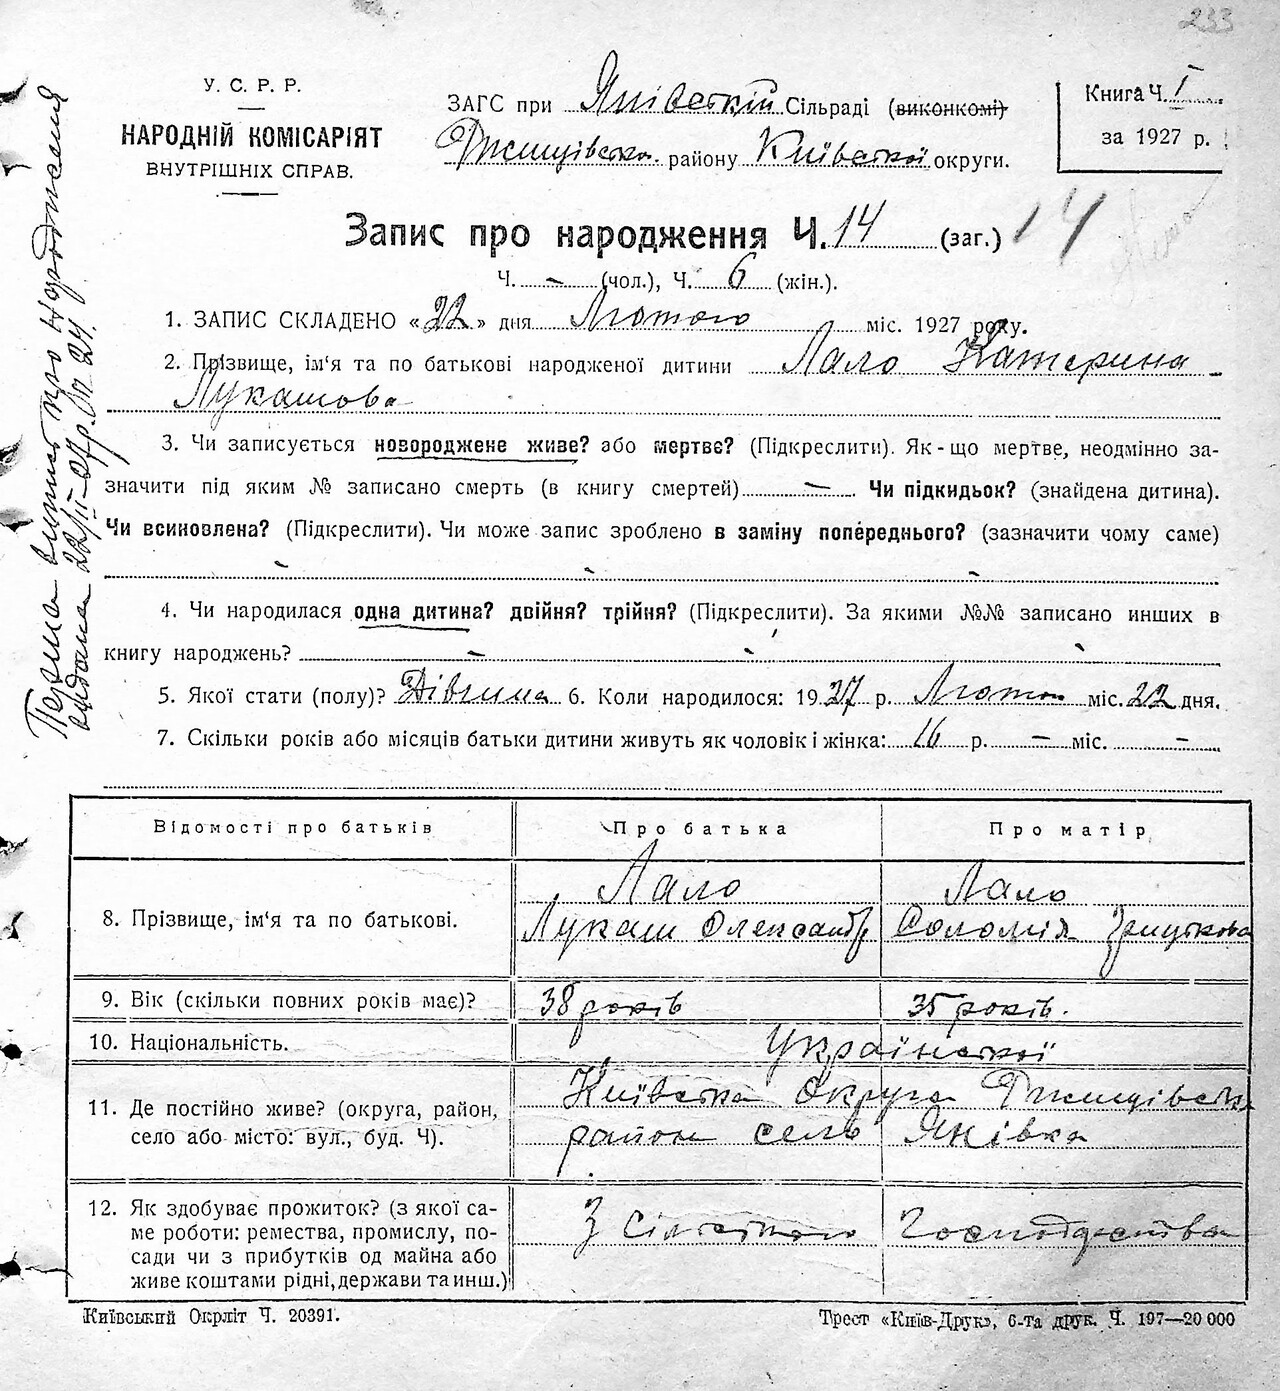 233
У. С. Р. Р.
НАРОДНІЙ КОМІСАРІЯТ
ВНУТРІШНІХ СПРАВ.
ЗАГС при Янівській Сільраді (виконкомі)
Ржищівськ. району Київської округи.
Книга Ч. I
за 1927 р.
Запис про народження Ч. 14 (заг.) 14
Ч. – (чол.), Ч. 6 (жін.).
1. ЗАПИС СКЛАДЕНО «22» дня Лютого міс. 1927 року.
2. Прізвище, ім'я та по батькові народженої дитини Лало Катерина
Лукашова
3. Чи записується новороджене живе? або мертве? (Підкреслити). Як-що мертве, неодмінно за-
значити під яким № записано смерть (в книгу смертей) – . Чи підкидьок? (знайдена дитина).
Чи всиновлена? (Підкреслити). Чи може запис зроблено в заміну попереднього? (зазначити чому саме)
4. Чи народилася одна дитина? двійня? трійня? (Підкреслити). За якими №№ записано инших в
книгу народжень? –
5. Якої стати (полу)? Дівчина 6. Коли народилося: 1927 р. Лютого міс. 22 дня.
7. Скільки років або місяців батьки дитини живуть як чоловік і жінка: 16 р. – міс. –
Відомості про батьків Про батька Про матір
8. Прізвище, ім'я та по батькові. Лало Лукаш Олександр Лало Соломія Грицькова
9. Вік (скільки повних років має)? 38 років 35 років.
10. Національність. Української
11. Де постійно живе? (округа, район, Київська округа Ржищівськ
село або місто: вул., буд. Ч). район село Янівка
12. Як здобуває прожиток? (з якої са-
ме роботи: ремества, промислу, по- З сільського Господарства
сади чи з прибутків од майна або
живе коштами рідні, держави та инш.)
Київський Окрліт Ч. 20391.
Трест «Київ-Друк», 6-та друк. Ч. 197—20 000
випис про народження
видана 22/II-27р. 24.